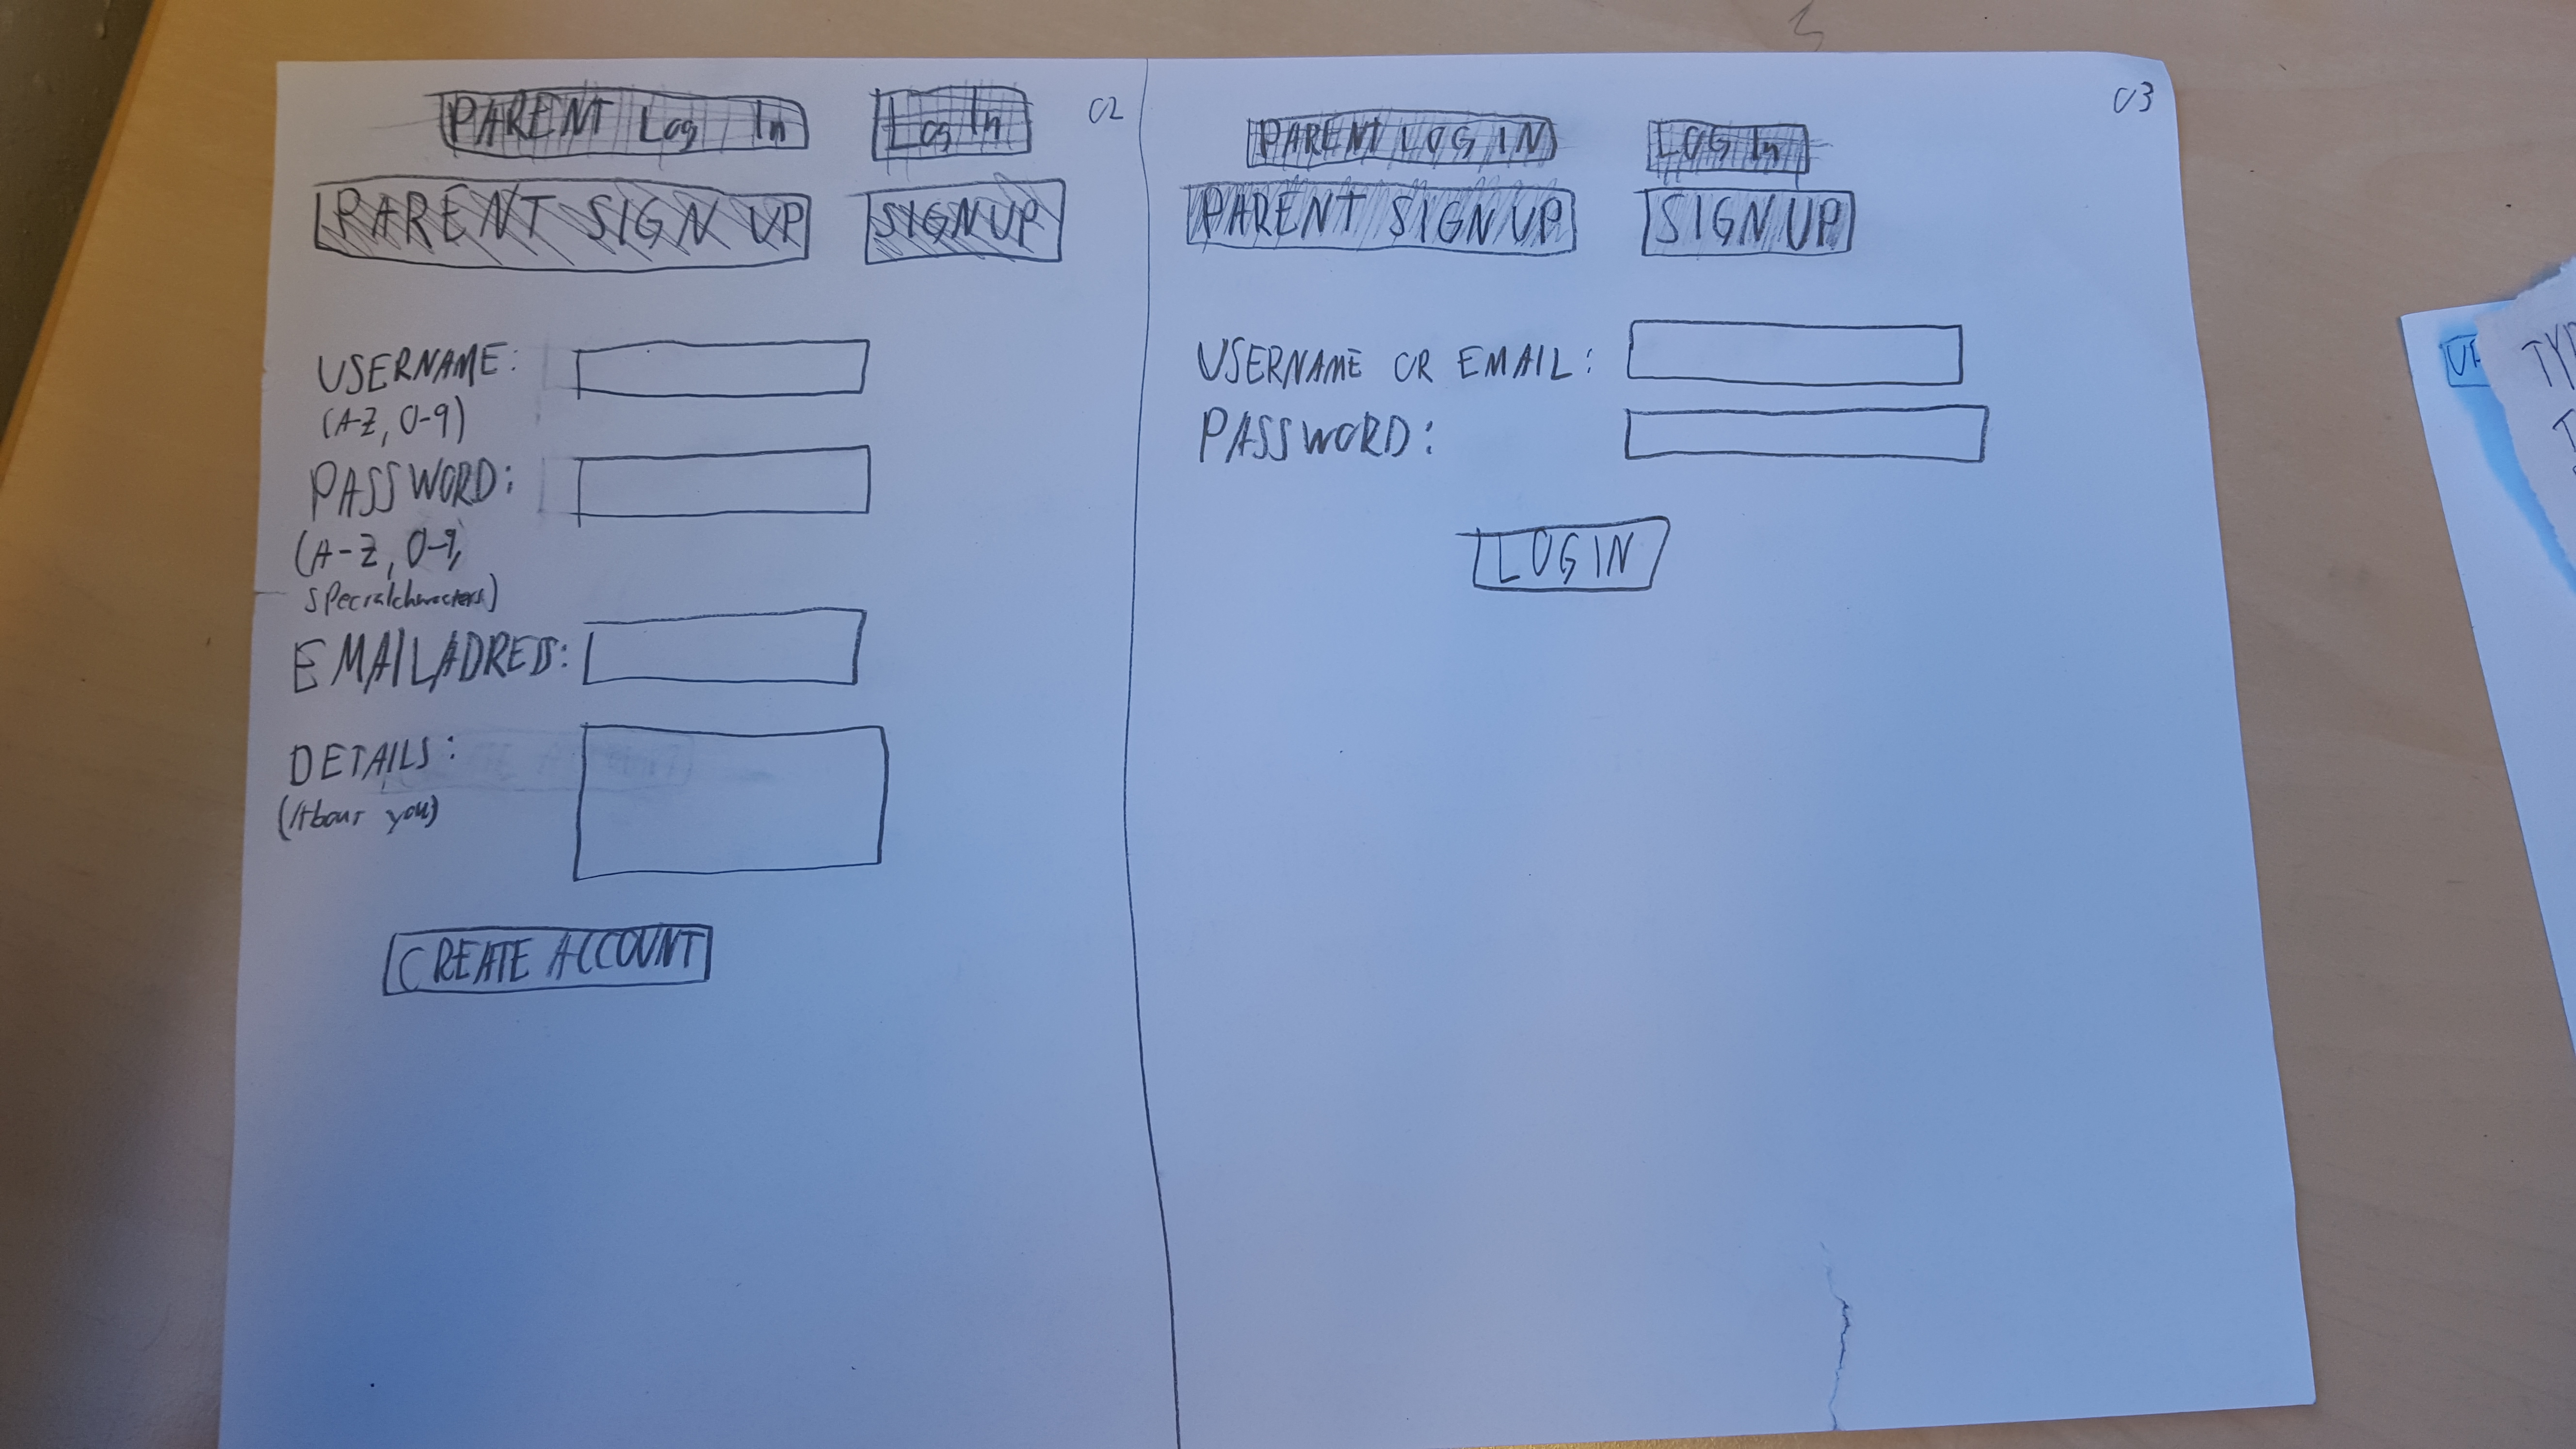 02
PARENT Log In
Log In
PARENT SIGN UP
SIGN UP
USERNAME:
(A-Z, 0-9)
PASSWORD:
(A-Z, 0-9,
specialcharacters)
EMAILADRESS:
DETAILS:
(About you)
CREATE ACCOUNT
03
PARENT LOG IN
LOG In
PARENT SIGN UP
SIGN UP
USERNAME OR EMAIL:
PASSWORD:
LOGIN